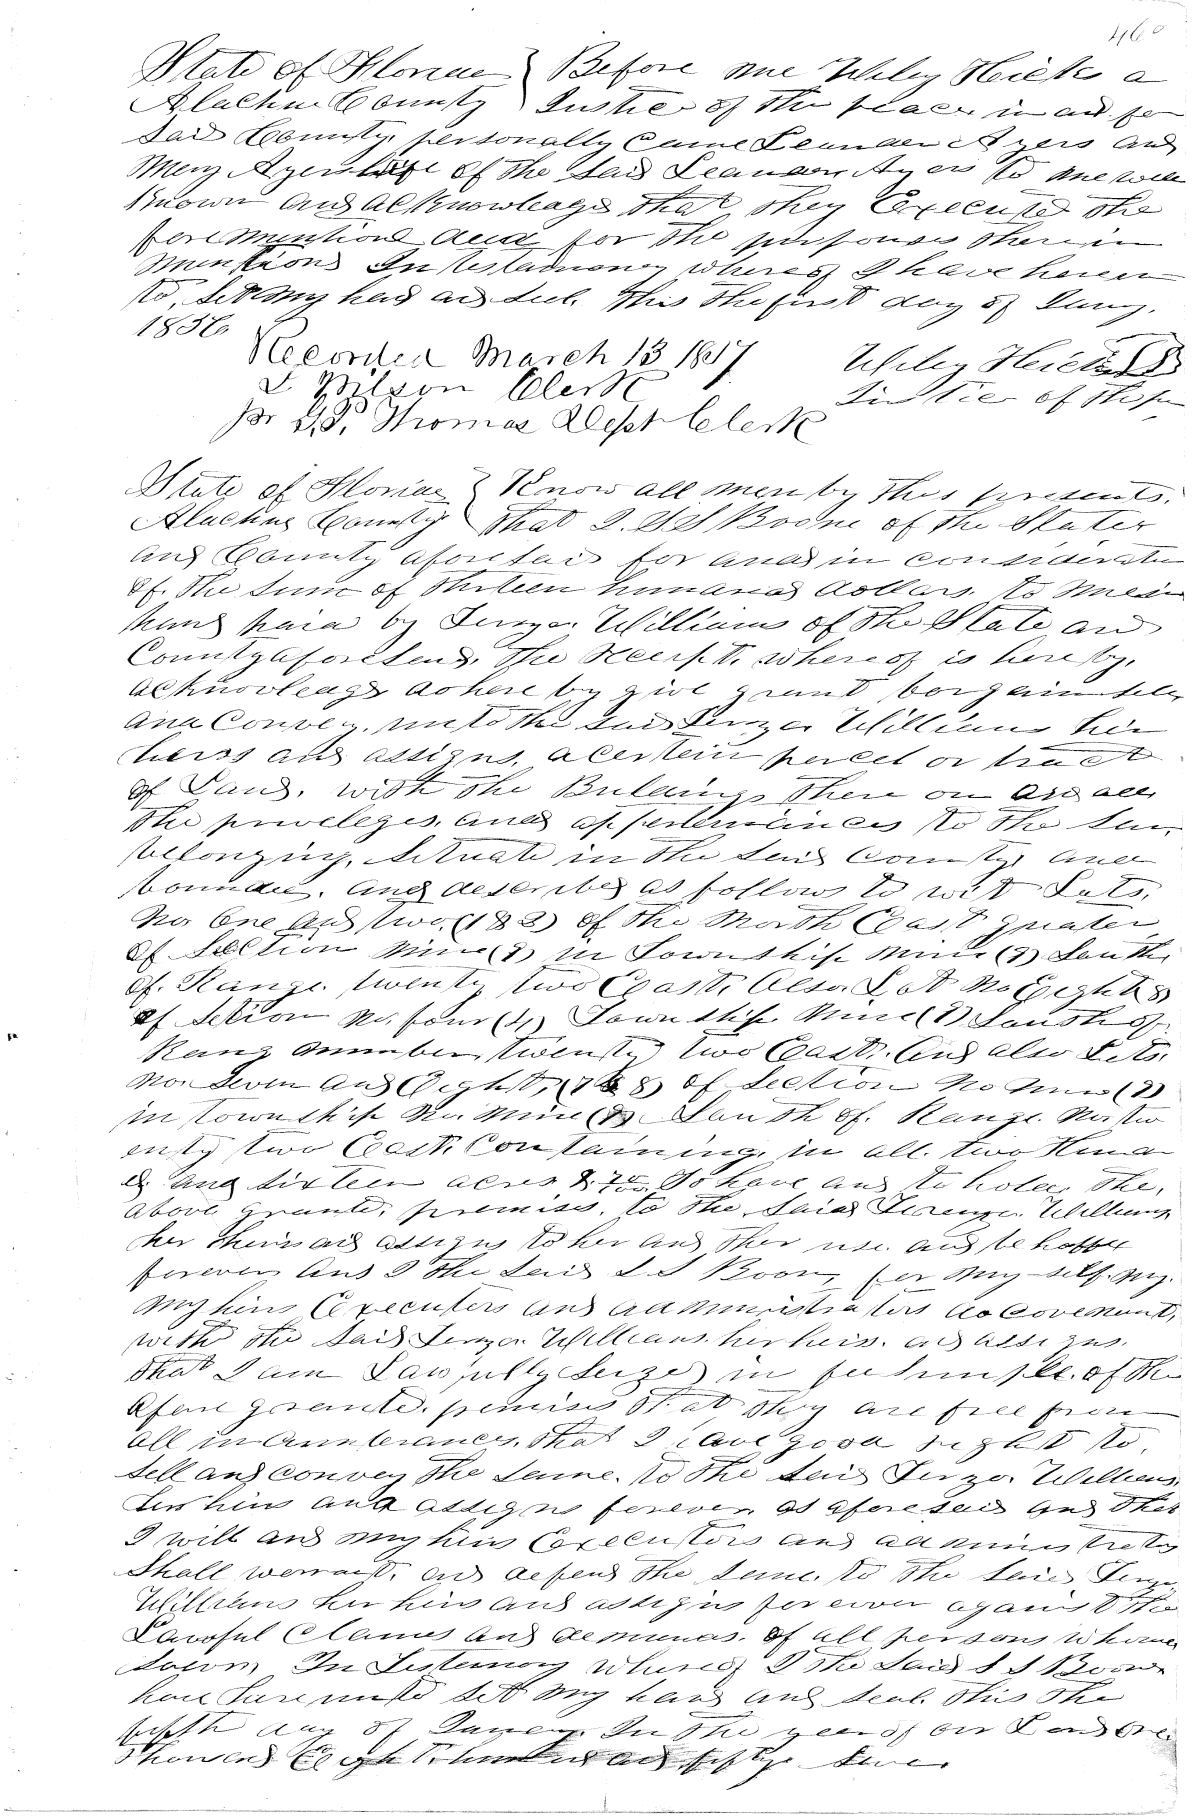 460
State of Floriae } Before me Wiley Hicks a
Alachua County } Justice of the peace in and for
Said County, personally Came Leander Ayers and
Mery Ayers wife of the Said Leander Ayers to me well
Known and acKnowleage that they Executed the
fore mentiond deed for the purposes therein
mentiond In testamony whereof I have herun
to, Set my hand and Seal this the first day of Jany.
1856
Recorded March 13 1857
Wiley Hicks
Wilson Clerk
Justice of the p
pr Thomas Dept Clerk
State of Floriae } Know all men by thes presents.
Alachua County } that I. Boone of the State
and County afore said for and in consideration
of. the Sum of thirteen hundred dollars to me in
hand paid by Williams of the State and
County aforesaid. the receipt. whereof is hereby.
acknowleage do here by give grant bargain sell
and Convey, unto the said Williams her
heirs and assigns, a certein parcel or tract
of Land. with the Buldings there on and all
the priveleges, and appertenances to the same
belonging, Situate in the Said County, and
bounded. and described as follows to wit Lots.
No. One and two, (1 & 2) of the North East quater
of Section Nine (9) in Township Nine (9) South
of. Range. twenty two East. Also. Lot No Eight 8)
of Section No. four (4) Township Nine (9) South of
Rang number, twenty two East. And also Lots.
No. Seven and Eight, (7 & 8) of Section No Nine (9)
in township No. Nine (9) South of. Range. No. tw
enty two East. Containing, in all. two Hundr
ed and Sixteen acres To have and to hold. the.
above granted, premises, to the Said Williams
her heirs and assigns to her and ther use and behoof
forever And I the Said Boon, for my-self. my.
my heirs Executers and administrators do covenant,
with the Said Williams. her heirs. and assigns.
that I am Lawfully Seized in fee Simple. of the
afore granted. premises that they are free from
all incumberances. that I have good right to,
sell and convey the Same. to the Said Williams.
her heirs and assigns forever. as aforesaid and that
I will and my heirs Executors and administrators
Shall werrant, and defend the Same. to the Said
Williams her heirs and assigns for ever against the
Lawful Claims and demands. of all persons
In Testemony Whereof I the Said Boone
have here unto Set my hand and Seal. this the
fifth day of In the year of our Lord One
thousand Eight hundred and fifty